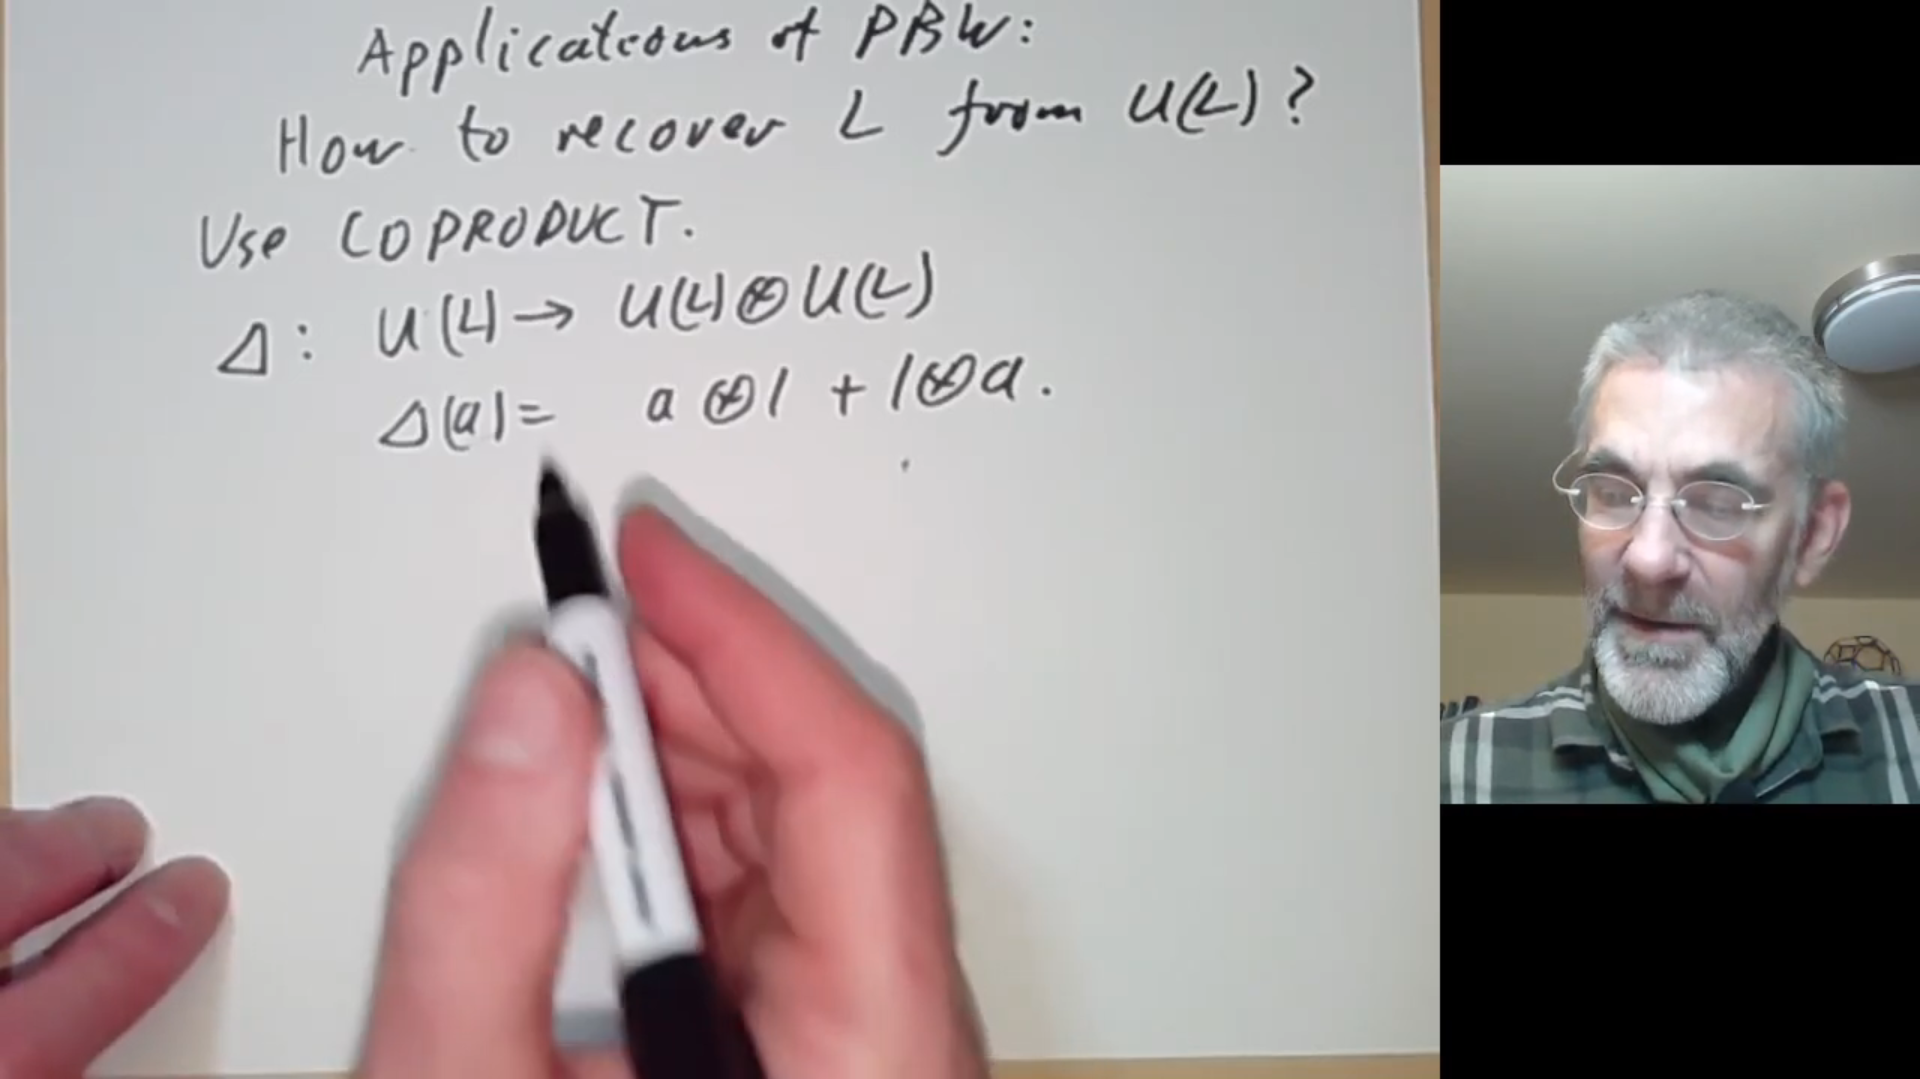 Applications of PBW:
How to recover L from U(L)?
Use COPRODUCT.
Δ: U(L) → U(L)⊗U(L)
Δ(a) = a⊗1 + 1⊗a.